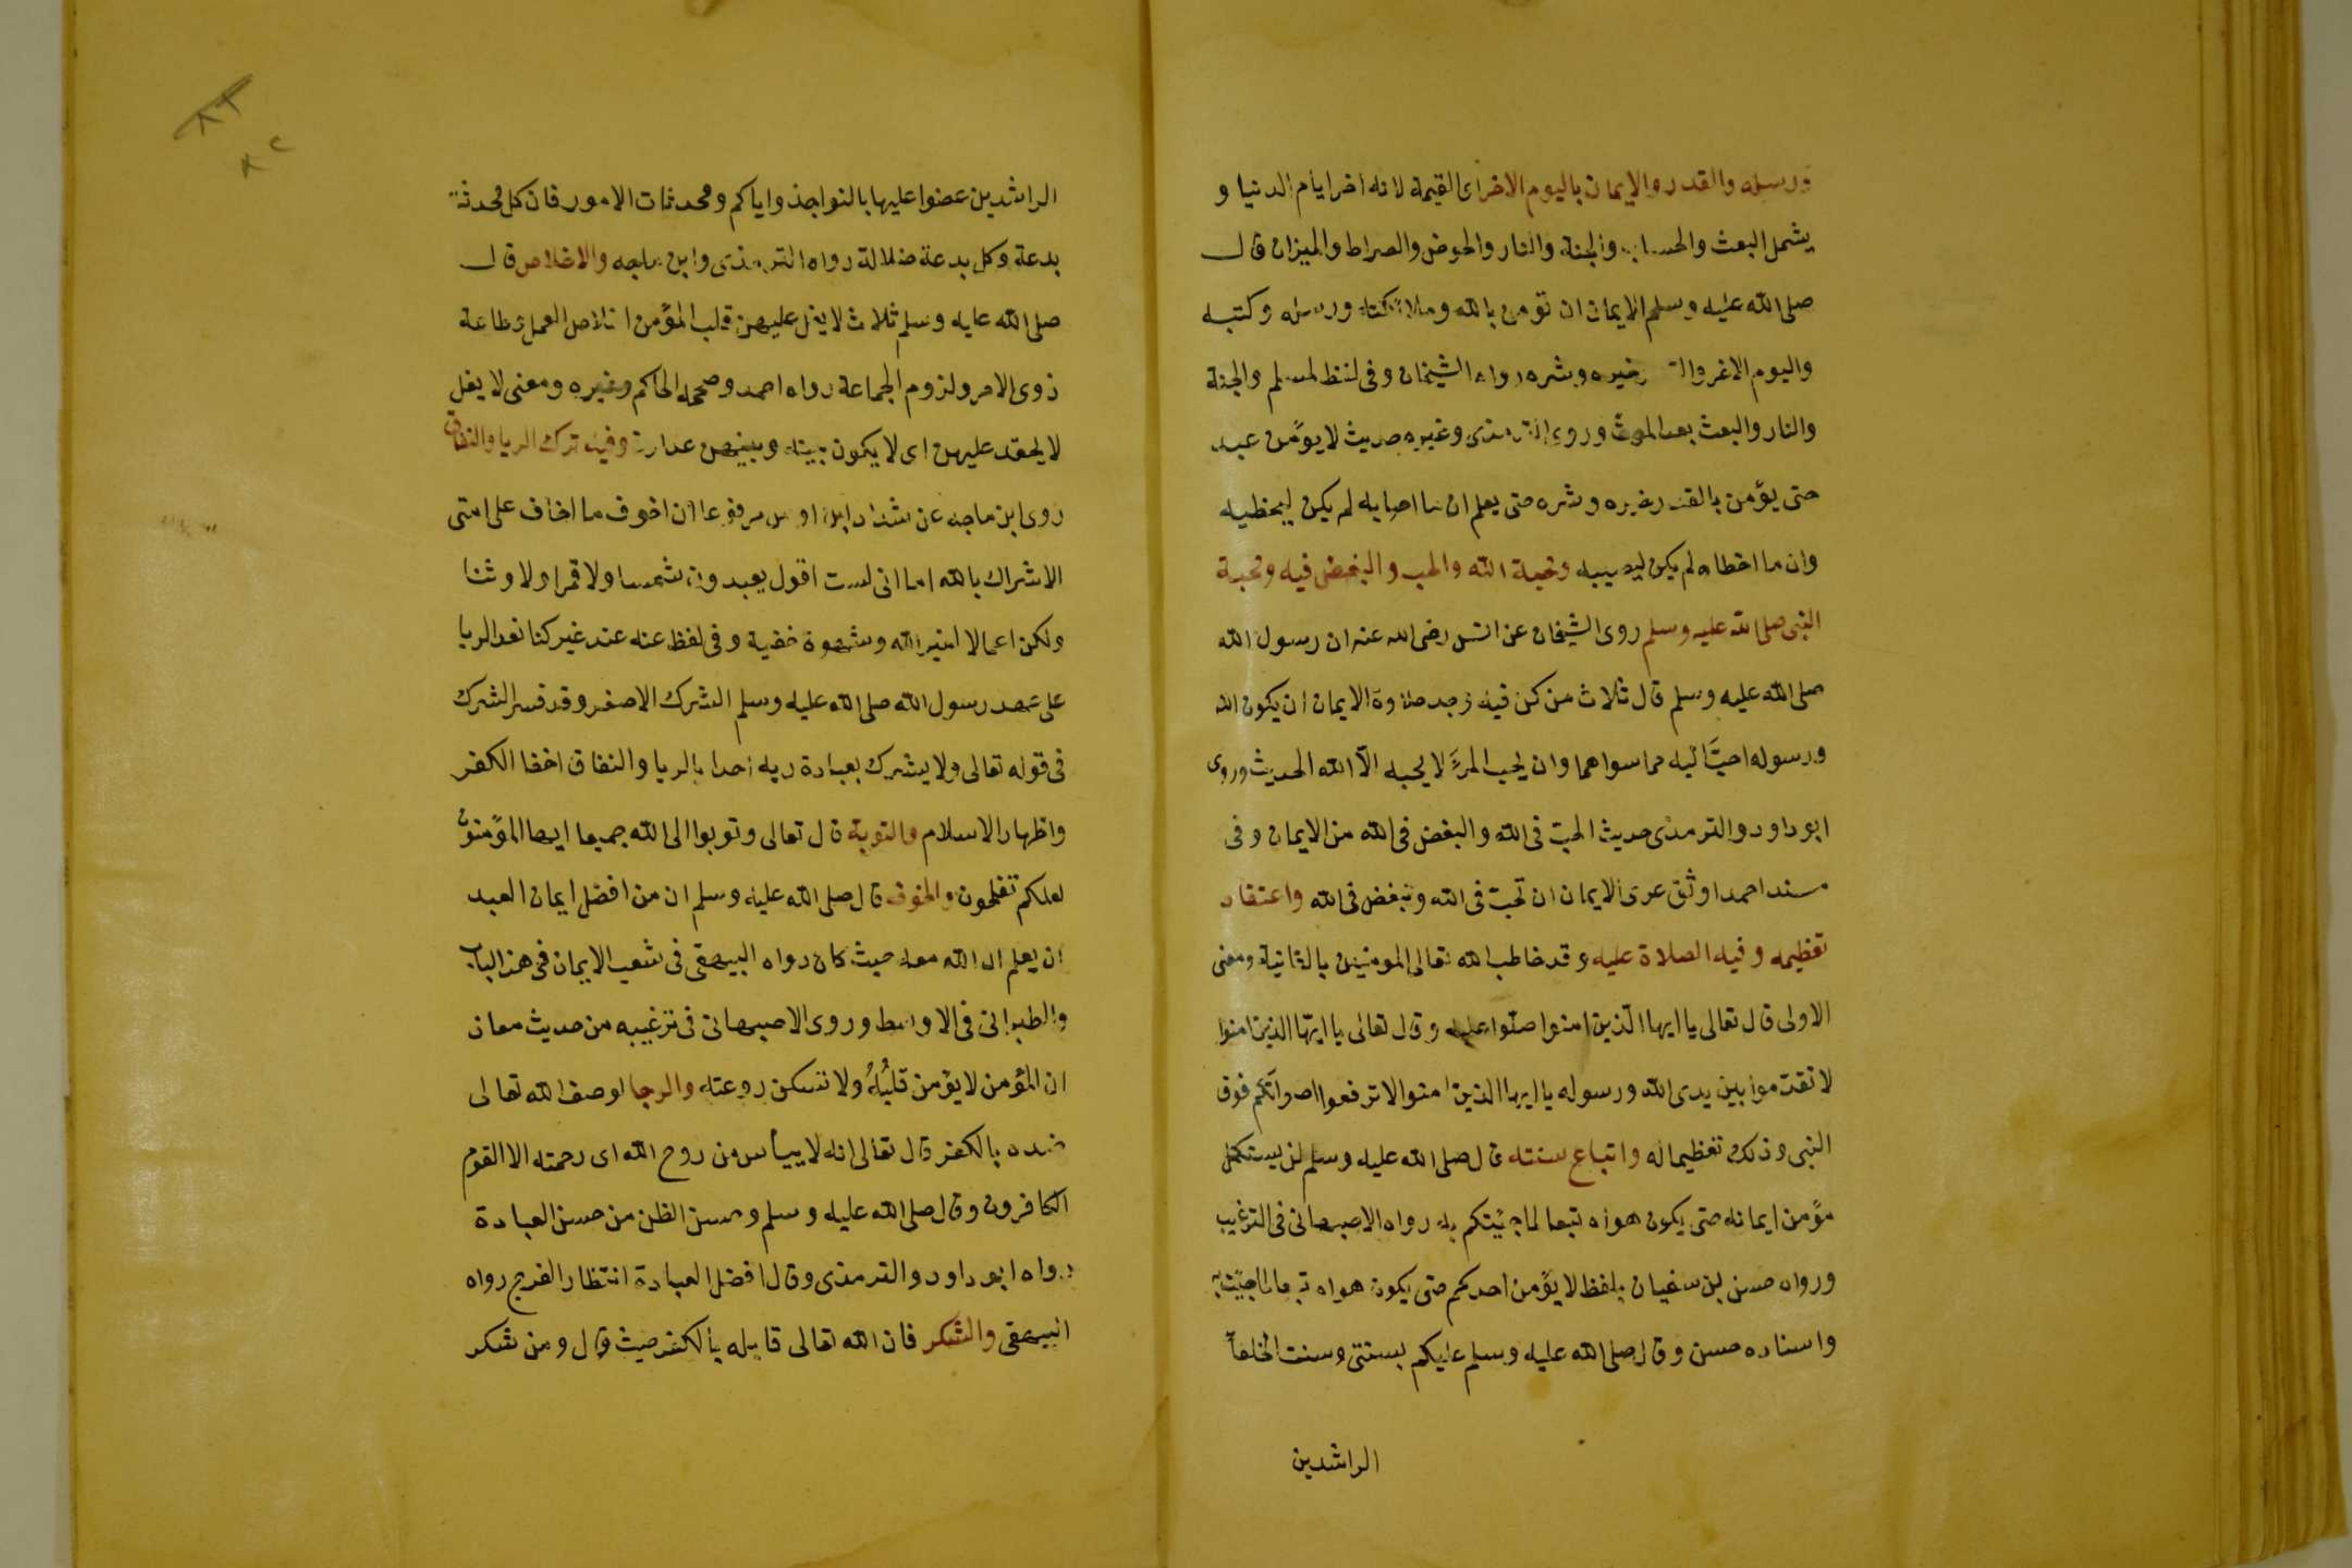 ورسله والقدر والايمان باليوم الاخر اى القيمة لانه اخر ايام الدنيا و
يشمل البعث والحساب والجنة والنار والحوض والصراط والميزان قال
صلى الله عليه وسلم الايمان ان تومن بالله وملائكته ورسله وكتبه
واليوم الاخر خيره وشره رواه الشيخان وفى لفظ لمسلم والجنة
والنار والبعث بعد الموت وروى الترمذى وغيره حديث لا يؤمن عبد
حتى يؤمن بالقدر خيره وشره حتى يعلم ان ما اصابه لم يكن ليخطيه
وان ما اخطاه لم يكن ليصيبه ومحبة الله والحب والبغض فيه ومحبة
النبى صلى الله عليه وسلم روى الشيخان عن انس رضى الله عنه ان رسول الله
صلى الله عليه وسلم قال ثلاث من كن فيه وجد حلاوة الايمان ان يكون الله
ورسوله احبّ اليه مما سواهما وان يحب المرء لا يحبه الّا الله الحديث وروى
ابو داود والترمذى حديث الحبّ فى الله والبغض فى الله من الايمان وفى
مسند احمد اوثق عرى الايمان ان تحبّ فى الله وتبغض فى الله واعتقاد
تعظيمه وفيه الصلاة عليه وقد خاطب الله تعالى المومنين بالثانية ومعنى
الاولى قال تعالى يا ايها الّذين امنوا صلّوا عليه وقال تعالى يا ايّها الذين امنوا
لا تقدّموا بين يدى الله ورسوله يا ايها الذين امنوا لا ترفعوا اصواتكم فوق
النبى وذلك تعظيما له واتباع سنته قال صلى الله عليه وسلم لن يستكمل
مؤمن ايمانه حتى يكون هواه تبعا لما جيئتكم به رواه الاصبهانى فى الترغيب
ورواه حسن بن سفيان بلفظ لا يؤمن احدكم حتى يكون هواه تبعا لما جيت به
واسناده حسن وقال صلى الله عليه وسلم عليكم بسنتى وسنت الخلفاء
الراشدين
الراشدين عضوا عليها بالنواجذ واياكم ومحدثات الامور فان كل محدثة
بدعة وكل بدعة ضلالة رواه الترمذى وابن ماجه والاخلاص قال
صلى الله عليه وسلم ثلاث لا يغل عليهن قلب المؤمن اخلاص العمل وطاعة
ذوى الامر ولزوم الجماعة رواه احمد وصححه الحاكم وغيره ومعنى لا يغل
لا يحقد عليهن اى لا يكون بينه وبينهن عداوة وفيه ترك الريا والنفاق
روى ابن ماجه عن شداد ابن اوس مرفوعا ان اخوف ما اخاف على امتى
الاشراك بالله اما انى لست اقول يعبدون شمسا ولا قمرا ولا وثنا
ولكن اعمالا لغير الله وشهوة خفية وفى لفظ عنه عند غير كنا نعد الريا
على عهد رسول الله صلى الله عليه وسلم الشرك الاصغر وقد فسر الشرك
فى قوله تعالى ولا يشرك بعبادة ربه احدا بالريا والنفاق اخفا الكفر
واظهار الاسلام والتوبة قال تعالى وتوبوا الى الله جميعا ايها المؤمنون
لعلكم تفلحون والخوف قال صلى الله عليه وسلم ان من افضل ايمان العبد
ان يعلم ان الله معه حيث كان رواه البيهقى فى شعب الايمان فى هذا الباب
والطبرانى فى الاوسط وروى الاصبهانى فى ترغيبه من حديث معاذ
ان المؤمن لا يؤمن قلبُهُ ولا تسكن روعته والرجا اوصف الله تعالى
ضده بالكفر قال تعالى انه لا ييأس من روح الله اى رحمته الا القوم
الكافرون وقال صلى الله عليه وسلم وحسن الظن من حسن العبادة
رواه ابو داود والترمذى وقال افضل العبادة انتظار الفرج رواه
البيهقى والشكر فان الله تعالى قابله بالكفر حيث قال ومن شكر